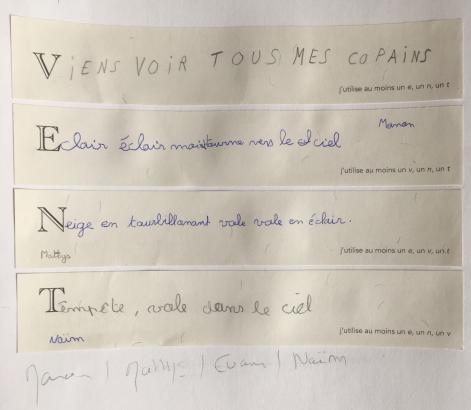 ViENS VOIR TOUS MES COPAINS
j'utilise au moins un e, un n, un t
Manon
Eclair éclair tourne vers le ciel
j'utilise au moins un v, un n, un t
Neige en tourbillanant vole vole en éclair.
Mattys
j'utilise au moins un e, un v, un t
Tempête, vole dans le ciel
Naïm
j'utilise au moins un e, un n, un v
Manon / Mattys / Evan / Naïm